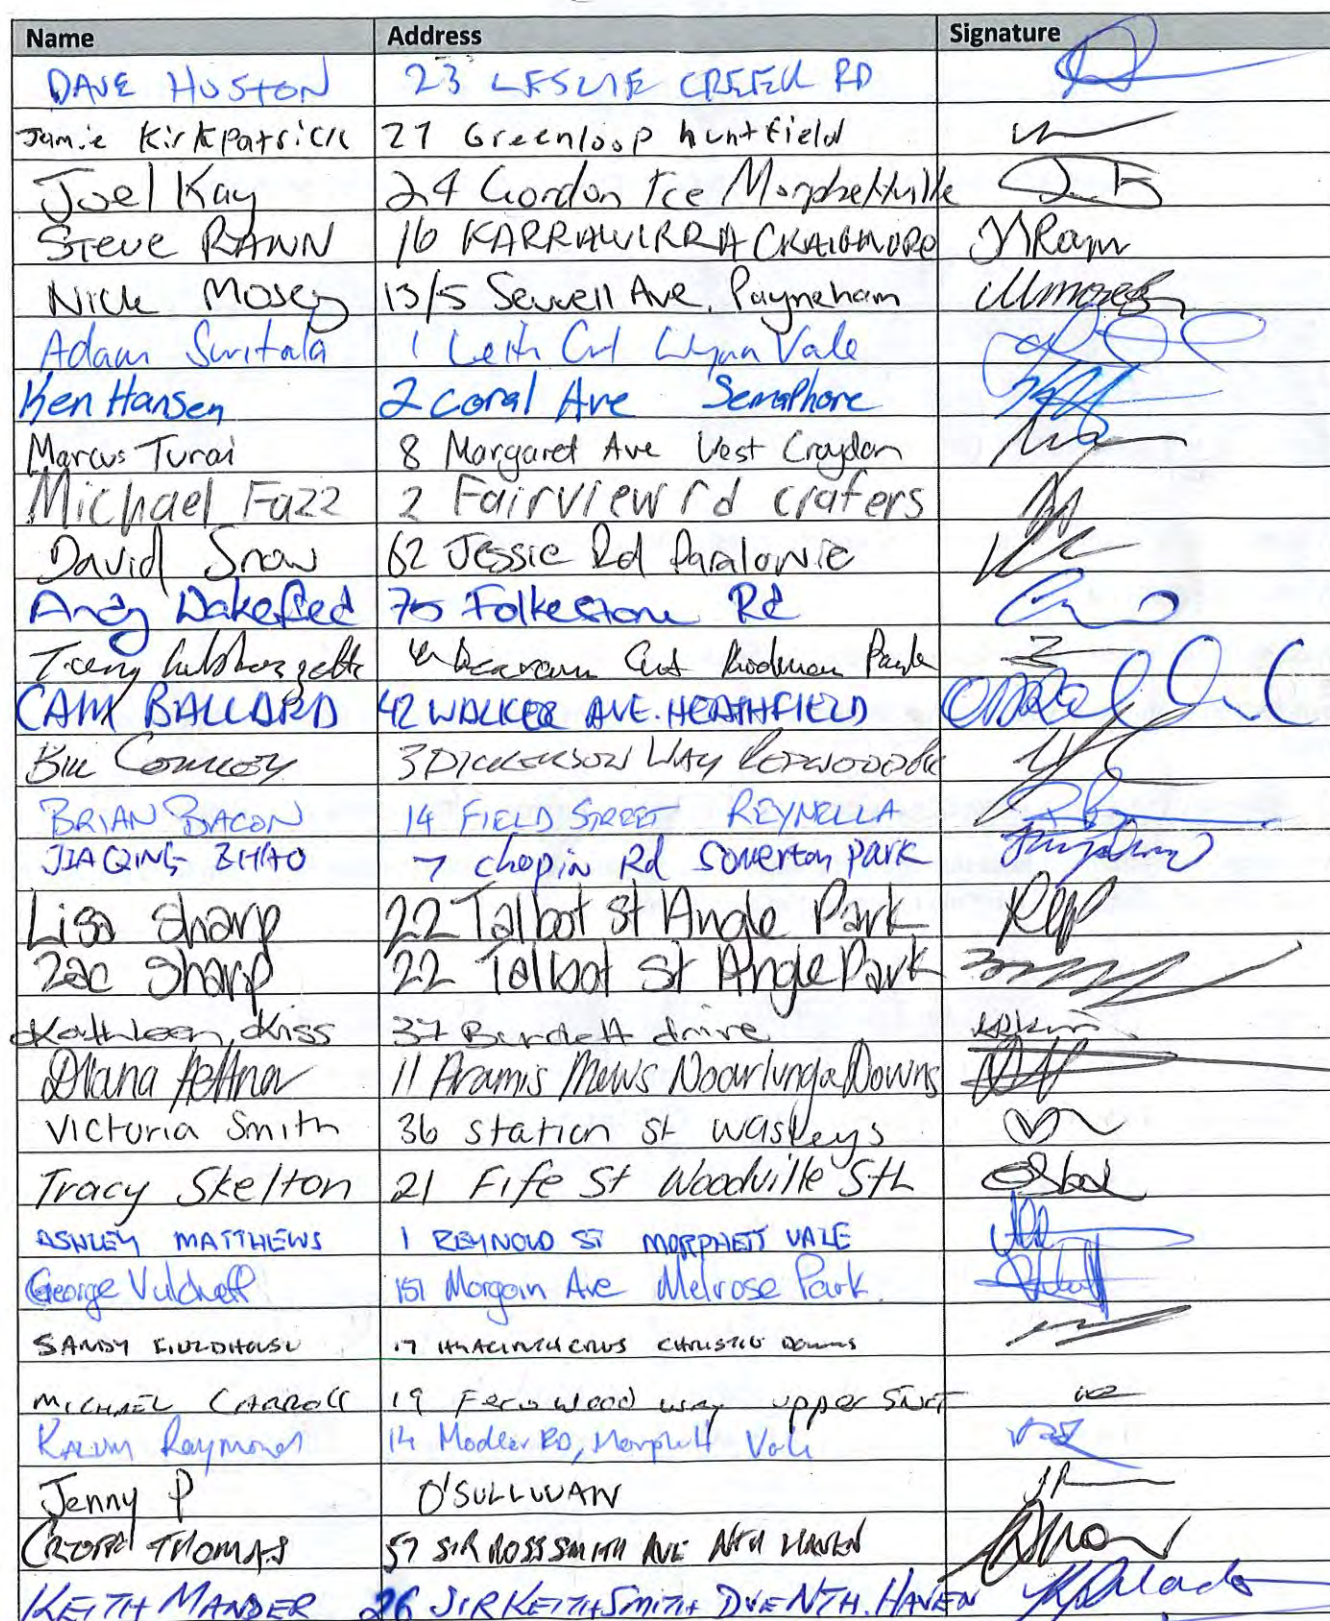 Name Address Signature
DAVE HUSTON 23 LESLIE CREEK RD
Jamie Kirkpatrick 27 Greenloop huntfield
Joel Kay 24 Gordon Tce Morphettville
Steve RANN 16 KARRAWIRRA CRAIGMORE
Nick Mosey 13/5 Sewell Ave, Payneham
Adam 1 Leith Crt Wynn Vale
Ken Hansen 2 coral Ave Semaphore
Marcus Turai 8 Margaret Ave West Croydon
Michael Fazz 2 Fairview rd crafers
David Snow 62 Jessie Rd Paralowie
Andy Wakefied 75 Folkestone Rd
Park
CAM BALLARD 42 WALKER AVE. HEATHFIELD
Bill Conroy 3 DICKENSON WAY
BRIAN BACON 14 FIELD STREET REYNELLA
JIAQING ZHAO 7 chopin Rd Somerton park
Lisa Sharp 22 Talbot st Angle Park
Zac Sharp 22 Talbot st Angle Park
Kathleen Kiss 37 Burdett drive
Diana 11 Aramis Mews Noarlunga Downs
Victoria Smith 36 station st wasleys
Tracy Skelton 21 Fife St Woodville Sth
ASHLEY MATTHEWS 1 REYNOLD ST MORPHETT VALE
George Vulcheff 151 Morgan Ave Melrose Park
SANDY FIELDHOUSE 17 CHRISTIE DOWNS
MICHAEL CARROLL 19 Fernwood way upper
Raymond 14 Modler RD, Morphett Vale
Jenny P O'SULLIVAN
THOMAS 57 SIR ROSS SMITH AVE NTH HAVEN
KEITH MANDER 26 SIR KEITH SMITH DVE NTH. HAVEN